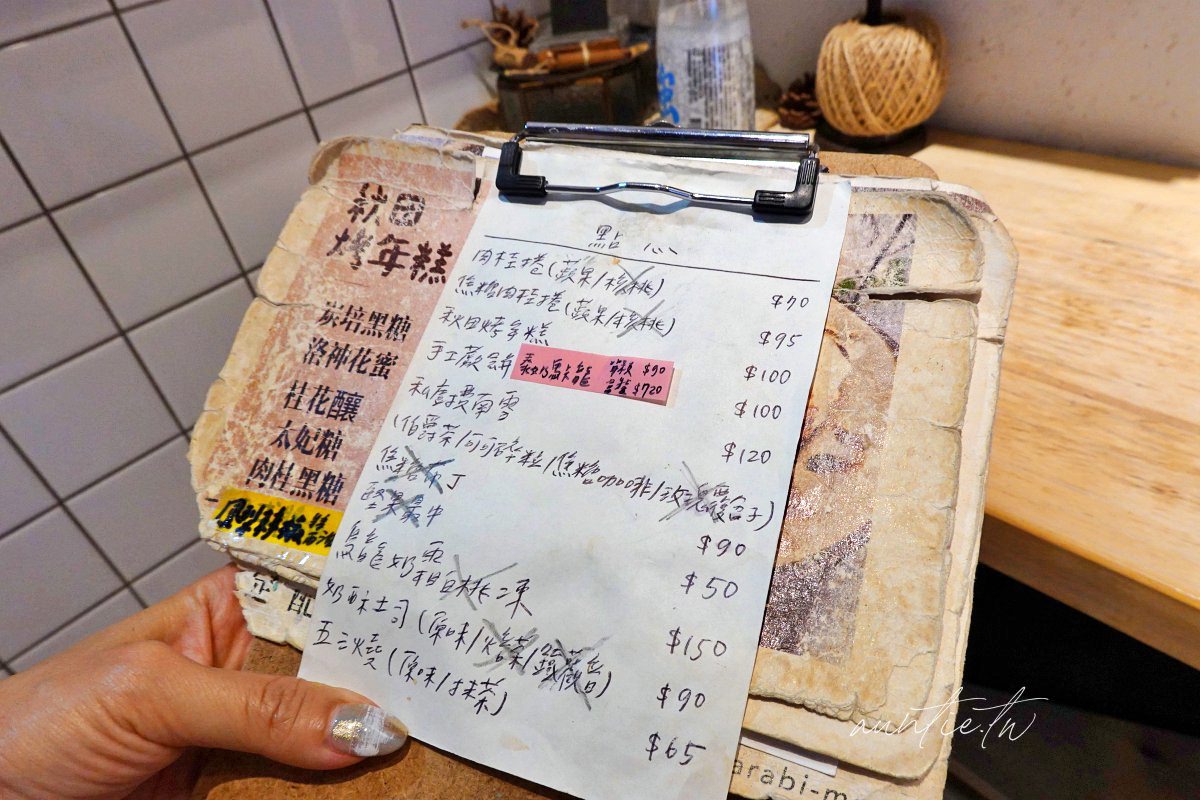 秋田
烤年糕
炭培黑糖
洛神花蜜
桂花釀
太妃糖
肉桂黑糖
配
點心
肉桂捲(蘋果/核桃) $70
焦糖肉桂捲(蘋果/核桃) $95
秋田烤年糕 $100
手工蕨餅 $100
泰奶烏龍 單 $90
$720
私房提南雪 $120
(伯爵茶/可可碎粒/焦糖咖啡/玫瑰覆盆子)
焦糖布丁 $90
堅果最中 $50
烏龍奶霜
相見桃凍 $150
奶酥土司(原味/焙茶/鐵觀音) $90
五三燒(原味/抹茶) $65
auntie.tw
arabi-m